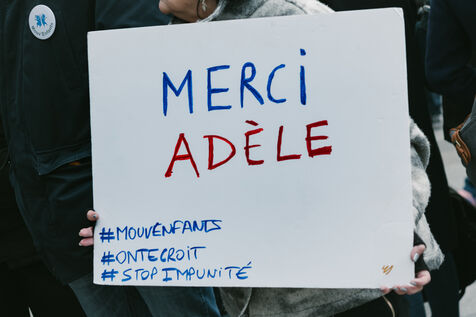 MERCI
ADÈLE
#MOUVENFANTS
#ONTECROIT
#STOP IMPUNITÉ